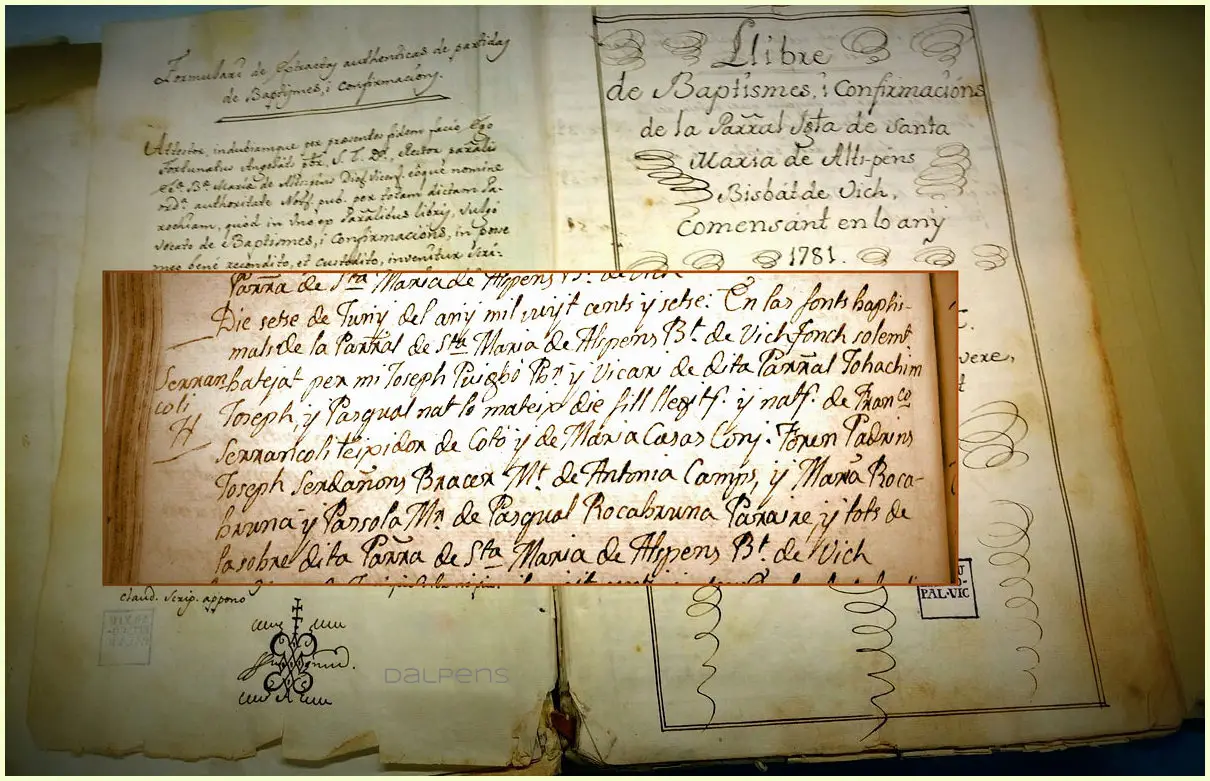 Formulari de Extraccions authenticas de partidas
de Baptismes, i Confirmacions.
Attestor, indubiamque per presentes fidem facio Ego
Fortunatus Angelats pbr. S. T. Dr. Rector parralis
Eccae. Bae. Mariae de Altispens Dioc. Vicen. eoque nomine
ord. authoritate Nots. pub. per totam dictam Pa-
rochiam, quod in uno ex Parralibus libris, vulgo
vocato de Baptismes, i Confirmacions, in posse
meo bene recondito, et custodito, invenitur scri-
claud. Scrip. appono
Llibre
de Baptismes, i Confirmacions
de la Parral Igta de Santa
Maria de Altspens
Bisbat de Vich,
Comensant en lo any
1781.
vere,
PAL·VIC
Parra de Sta Maria de Alpens Bt. de Vich
Die setse de Juny del any mil vuyt cents y setse: En las fonts baptis-
mals de la Parral de Sta Maria de Alpens Bt. de Vich fonch solemt.
batejat per mi Joseph Puigbó Pbr. y Vicari de dita Parral Johachim
Joseph, y Pasqual nat lo mateix die fill llegitf. y natf. de Franco
Serrancoli teixidor de Cotó y de Maria Casas Conj. Foren Padrins
Joseph Serdañons Bracer Mt. de Antonia Camps, y Maria Roca-
bruna y Parsola Mr. de Pasqual Rocabruna Paraire, y tots de
la sobre dita Parra de Sta Maria de Alpens Bt. de Vich
Serran
coli
DALPENS